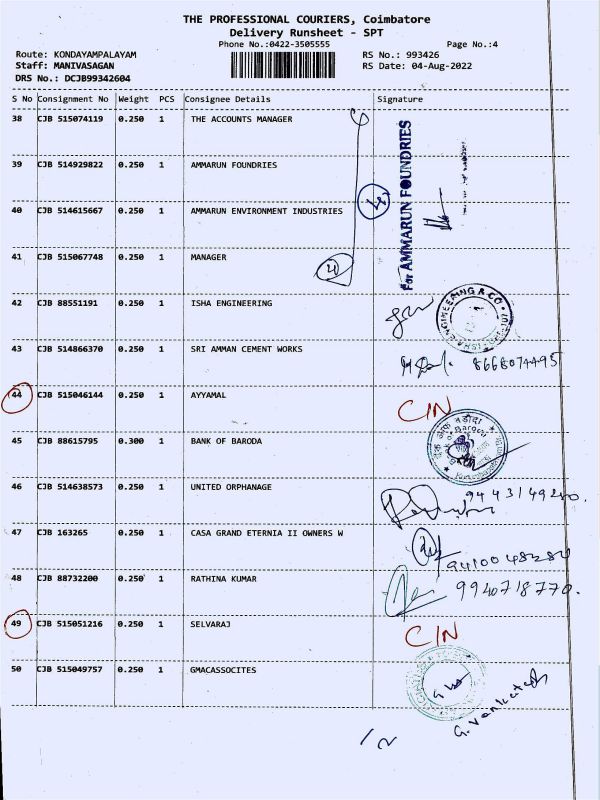 THE PROFESSIONAL COURIERS, Coimbatore
Delivery Runsheet - SPT
Phone No.:0422-3505555 Page No.:4
Route: KONDAYAMPALAYAM RS No.: 993426
Staff: MANIVASAGAN RS Date: 04-Aug-2022
DRS No.: DCJB99342604
S No Consignment No Weight PCS Consignee Details Signature
38 CJB 515074119 0.250 1 THE ACCOUNTS MANAGER
39 CJB 514929822 0.250 1 AMMARUN FOUNDRIES
40 CJB 514615667 0.250 1 AMMARUN ENVIRONMENT INDUSTRIES
For AMMARUN FOUNDRIES
41 CJB 515067748 0.250 1 MANAGER
42 CJB 88551191 0.250 1 ISHA ENGINEERING
ENGINEERING & CO
43 CJB 514866370 0.250 1 SRI AMMAN CEMENT WORKS
8668074495
44 CJB 515046144 0.250 1 AYYAMAL
CIN
45 CJB 88615795 0.300 1 BANK OF BARODA
बैंक ऑफ़ बड़ौदा
Bank of Baroda
46 CJB 514638573 0.250 1 UNITED ORPHANAGE
47 CJB 163265 0.250 1 CASA GRAND ETERNIA II OWNERS W
48 CJB 88732200 0.250 1 RATHINA KUMAR
9940718770.
49 CJB 515051216 0.250 1 SELVARAJ
CIN
50 CJB 515049757 0.250 1 GMACASSOCITES
G. Venkatesh